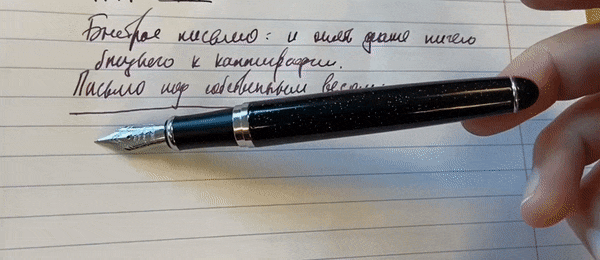 Быстрое письмо: и опять даже ничего
близкого к каллиграфии.
Письмо под собственным весом: